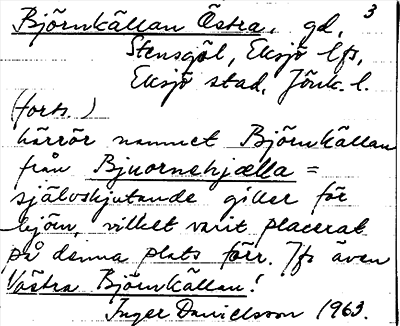 3
Björnkällan Östra, gd,
Stensgöl, Eksjö lfs,
Eksjö stad, Jönk. l.
(forts.)
härrör namnet Björnkällan
från Bjuornehjælla =
självskjutande giller för
björn, vilket varit placerat
på denna plats förr. Jfr även
Västra Björnkällan!
Inger Danielsson 1963.